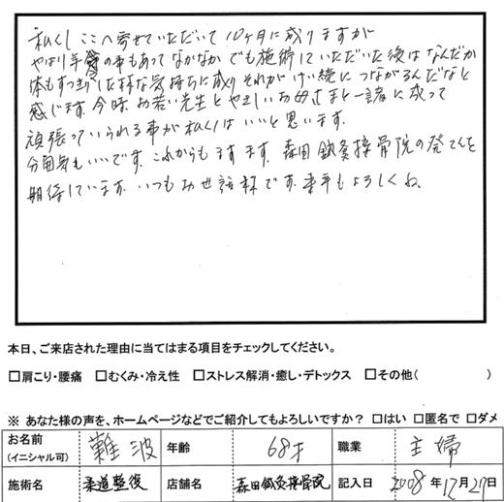 私くし ここへ寄せていただいて 10ヶ月に成りますが
やはり年齢の事もあってなかなか でも施術していただいた後はなんだか
体もすっきりした様な気持ちに成り それが けい続に つながるんだなと
感じます。今時 お若い先生と やさしいお母さまと一諸に成って
頑張っていられる事が私くしは いいと思います。
分囲気もいいです。これからもますます。森田鍼灸接骨院の発てんを
期待しています。いつもお世話様です。来年もよろしくね。
本日、ご来店された理由に当てはまる項目をチェックしてください。
□肩こり・腰痛 □むくみ・冷え性 □ストレス解消・癒し・デトックス □その他( )
※ あなた様の声を、ホームページなどでご紹介してもよろしいですか? □はい □匿名で □ダメ
お名前 (イニシャル可) 難波 年齢 68才 職業 主婦
施術名 柔道整復 店舗名 森田鍼灸接骨院 記入日 2008年12月27日